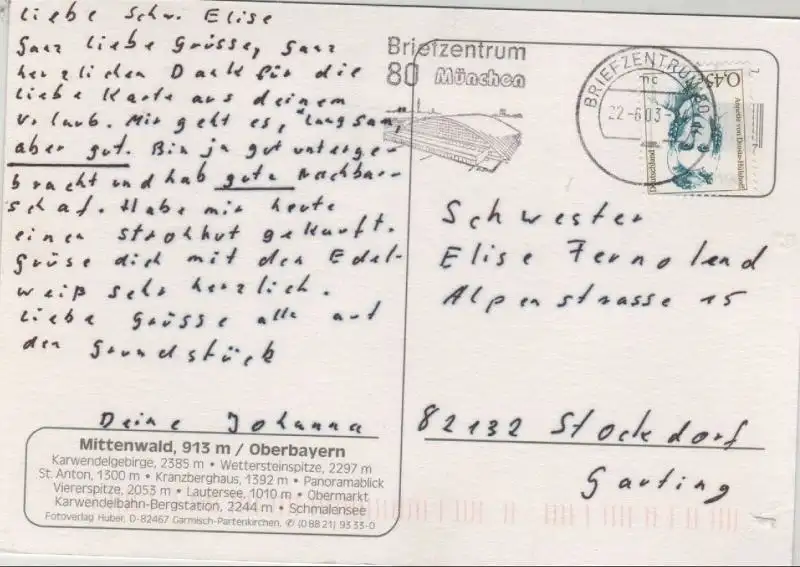 Liebe Schw. Elise
Ganz liebe Grüsse, ganz
herzlichen Dank für die
liebe Karte aus deinem
Urlaub. Mir geht es, "langsam,
aber gut. Bin ja gut unterge-
bracht und hab gute Nachbar-
schaf. Habe mir heute
einen Strohhut gekauft.
Grüse dich mit den Edel-
weiß sehr herzlich.
Liebe Grüsse alle auf
den Grundstück
Deine Johanna
Mittenwald, 913 m / Oberbayern
Karwendelgebirge, 2385 m • Wettersteinspitze, 2297 m
St. Anton, 1300 m • Kranzberghaus, 1392 m • Panoramablick
Viererspitze, 2053 m • Lautersee, 1010 m • Obermarkt
Karwendelbahn-Bergstation, 2244 m • Schmalensee
Fotoverlag Huber, D-82467 Garmisch-Partenkirchen, ✆ (0 88 21) 93 33-0
Briefzentrum
80 München
BRIEFZENTRUM 80
22-6.03-
0,45€
Annette von Droste-Hülshoff
Deutschland
Schwester
Elise Fernoland
Alpenstrasse 15
82132 Stockdorf
Gauting